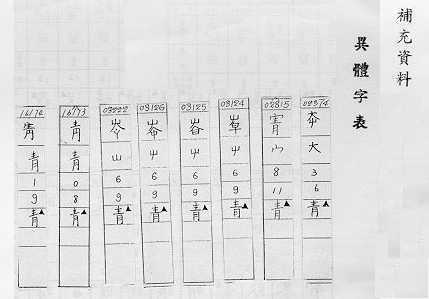 補充資料
異體字表
02374
大
3
6
青▲
02815
宀
8
11
青▲
03124
屮
6
9
青▲
03125
屮
6
9
青▲
03126
屮
6
9
青▲
03222
山
6
9
青▲
16173
青
青
0
8
青▲
青
1
9
青▲